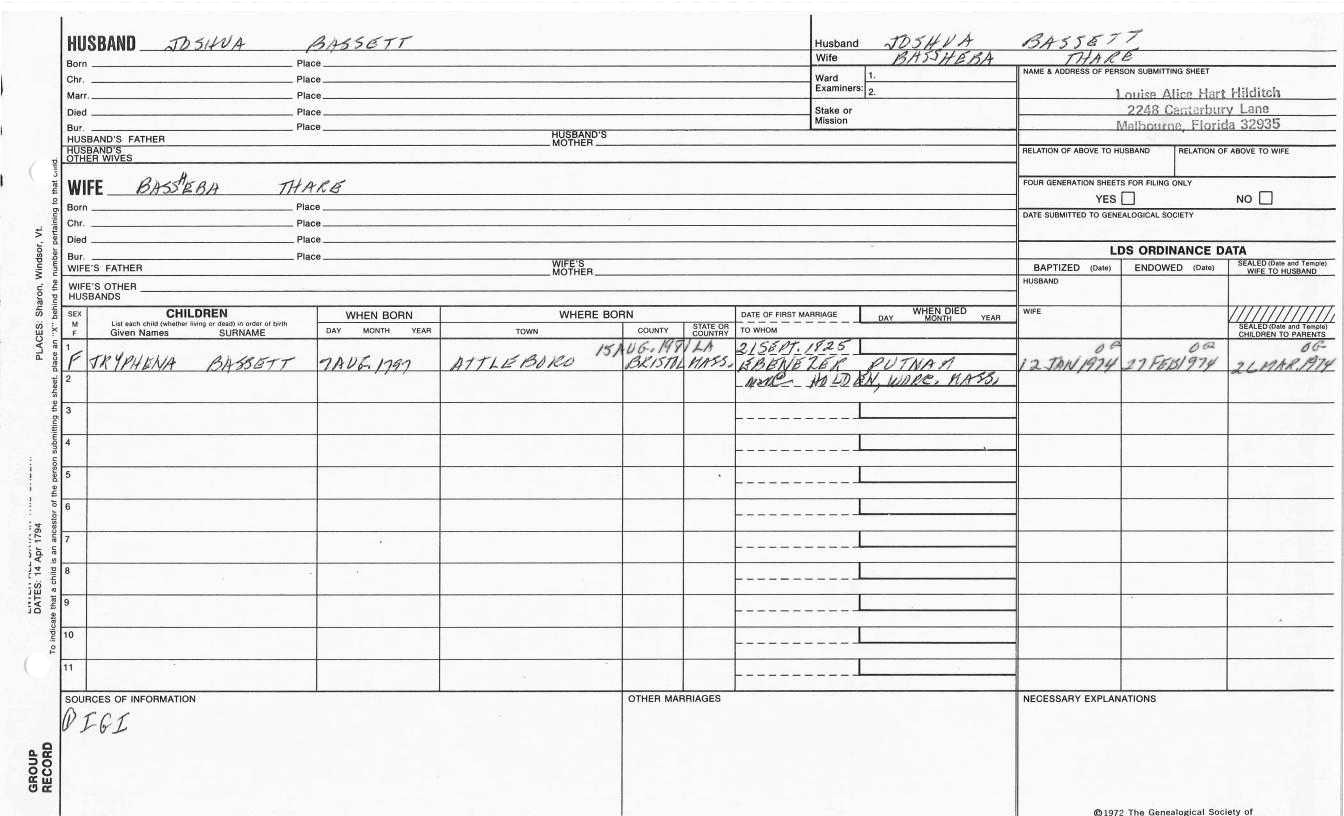 HUSBAND JOSHUA BASSETT
Born Place
Chr. Place
Marr. Place
Died Place
Bur. Place
HUSBAND'S FATHER HUSBAND'S MOTHER
HUSBAND'S OTHER WIVES
Husband JOSHUA BASSETT
Wife BASSHEBA THARE
Ward Examiners: 1. 2.
Stake or Mission
NAME & ADDRESS OF PERSON SUBMITTING SHEET
Louise Alice Hart Hilditch
2248 Canterbury Lane
Melbourne, Florida 32935
RELATION OF ABOVE TO HUSBAND RELATION OF ABOVE TO WIFE
FOUR GENERATION SHEETS FOR FILING ONLY
YES NO
DATE SUBMITTED TO GENEALOGICAL SOCIETY
WIFE BASSHEBA THARE
Born Place
Chr. Place
Died Place
Bur. Place
WIFE'S FATHER WIFE'S MOTHER
WIFE'S OTHER HUSBANDS
LDS ORDINANCE DATA
BAPTIZED (Date) ENDOWED (Date) SEALED (Date and Temple) WIFE TO HUSBAND
HUSBAND
WIFE
SEALED (Date and Temple) CHILDREN TO PARENTS
SEX M F
CHILDREN
List each child (whether living or dead) in order of birth
Given Names SURNAME
WHEN BORN
DAY MONTH YEAR
WHERE BORN
TOWN COUNTY STATE OR COUNTRY
DATE OF FIRST MARRIAGE
TO WHOM
WHEN DIED
DAY MONTH YEAR
15 AUG. 1971 LA 21 SEPT. 1825 OG OG OG
1 F TRYPHENA BASSETT 7 AUG. 1797 ATTLEBORO BRISTOL MASS. EBENEZER PUTNAM 12 JAN 1974 27 FEB 1974 26 MAR. 1974
2 HOLDEN, WORC. MASS.
3
4
5
6
7
8
9
10
11
SOURCES OF INFORMATION OTHER MARRIAGES NECESSARY EXPLANATIONS
① IGI
©1972 The Genealogical Society of
PLACES: Sharon, Windsor, Vt.
DATES: 14 Apr 1794
To indicate that a child is an ancestor of the person submitting the sheet, place an "X" behind the number pertaining to that child.
GROUP RECORD